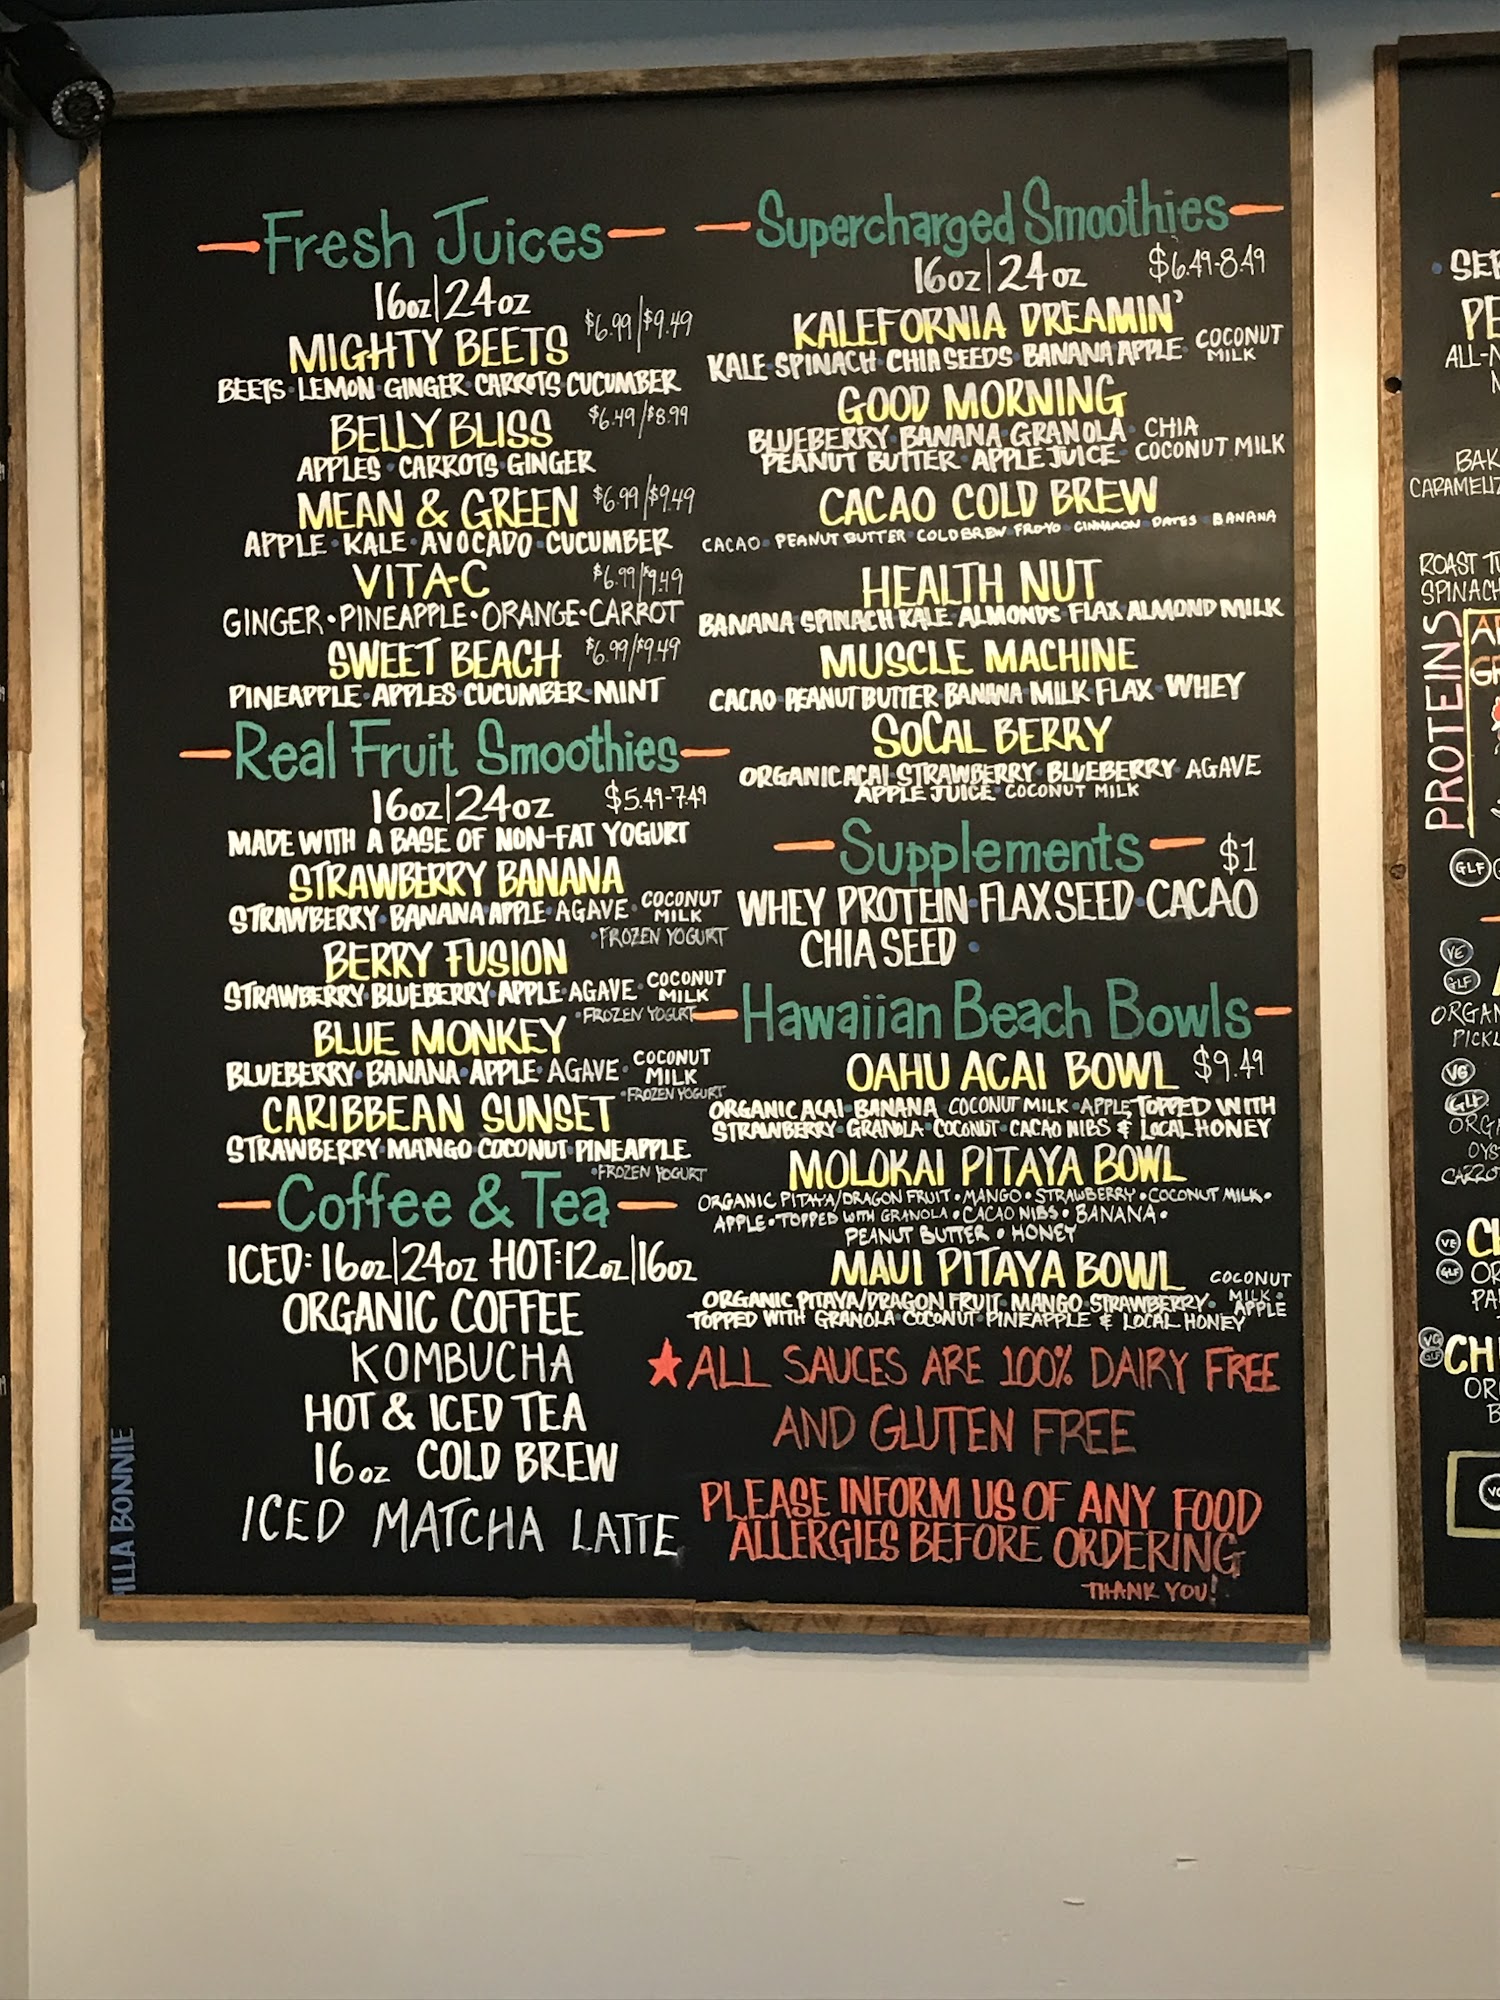 Fresh Juices
16oz|24oz
MIGHTY BEETS $6.99/$9.49
BEETS · LEMON · GINGER · CARROTS · CUCUMBER
BELLY BLISS $6.49/$8.99
APPLES · CARROTS · GINGER
MEAN & GREEN $6.99/$9.49
APPLE · KALE · AVOCADO · CUCUMBER
VITA-C $6.99/$9.49
GINGER · PINEAPPLE · ORANGE · CARROT
SWEET BEACH $6.99/$9.49
PINEAPPLE · APPLES · CUCUMBER · MINT
Real Fruit Smoothies
16oz|24oz $5.49-7.49
MADE WITH A BASE OF NON-FAT YOGURT
STRAWBERRY BANANA
STRAWBERRY · BANANA · APPLE · AGAVE · COCONUT MILK
· FROZEN YOGURT
BERRY FUSION
STRAWBERRY · BLUEBERRY · APPLE · AGAVE · COCONUT MILK
· FROZEN YOGURT
BLUE MONKEY
BLUEBERRY · BANANA · APPLE · AGAVE · COCONUT MILK
· FROZEN YOGURT
CARIBBEAN SUNSET
STRAWBERRY · MANGO · COCONUT · PINEAPPLE
· FROZEN YOGURT
Coffee & Tea
ICED: 16oz|24oz HOT: 12oz|16oz
ORGANIC COFFEE
KOMBUCHA
HOT & ICED TEA
16oz COLD BREW
ICED MATCHA LATTE
BONNIE
Supercharged Smoothies
16oz|24oz $6.49-8.49
KALEFORNIA DREAMIN'
KALE · SPINACH · CHIA SEEDS · BANANA · APPLE · COCONUT MILK
GOOD MORNING
BLUEBERRY · BANANA · GRANOLA · CHIA
PEANUT BUTTER · APPLE JUICE · COCONUT MILK
CACAO COLD BREW
CACAO · PEANUT BUTTER · COLD BREW · FROYO · CINNAMON · DATES · BANANA
HEALTH NUT
BANANA · SPINACH · KALE · ALMONDS · FLAX · ALMOND MILK
MUSCLE MACHINE
CACAO · PEANUT BUTTER · BANANA · MILK · FLAX · WHEY
SOCAL BERRY
ORGANIC ACAI · STRAWBERRY · BLUEBERRY · AGAVE
APPLE JUICE · COCONUT MILK
Supplements $1
WHEY PROTEIN · FLAXSEED · CACAO
CHIA SEED ·
Hawaiian Beach Bowls
OAHU ACAI BOWL $9.49
ORGANIC ACAI · BANANA · COCONUT MILK · APPLE, TOPPED WITH
STRAWBERRY · GRANOLA · COCONUT · CACAO NIBS & LOCAL HONEY
MOLOKAI PITAYA BOWL
ORGANIC PITAYA/DRAGON FRUIT · MANGO · STRAWBERRY · COCONUT MILK ·
APPLE · TOPPED WITH GRANOLA · CACAO NIBS · BANANA ·
PEANUT BUTTER · HONEY
MAUI PITAYA BOWL
ORGANIC PITAYA/DRAGON FRUIT · MANGO · STRAWBERRY · COCONUT MILK · APPLE
TOPPED WITH GRANOLA · COCONUT · PINEAPPLE & LOCAL HONEY
★ ALL SAUCES ARE 100% DAIRY FREE
AND GLUTEN FREE
PLEASE INFORM US OF ANY FOOD
ALLERGIES BEFORE ORDERING
THANK YOU!
ROAST
SPINACH
PROTEINS
GLF
VE
GLF
VG
GLF
VE
GLF
VG
GLF